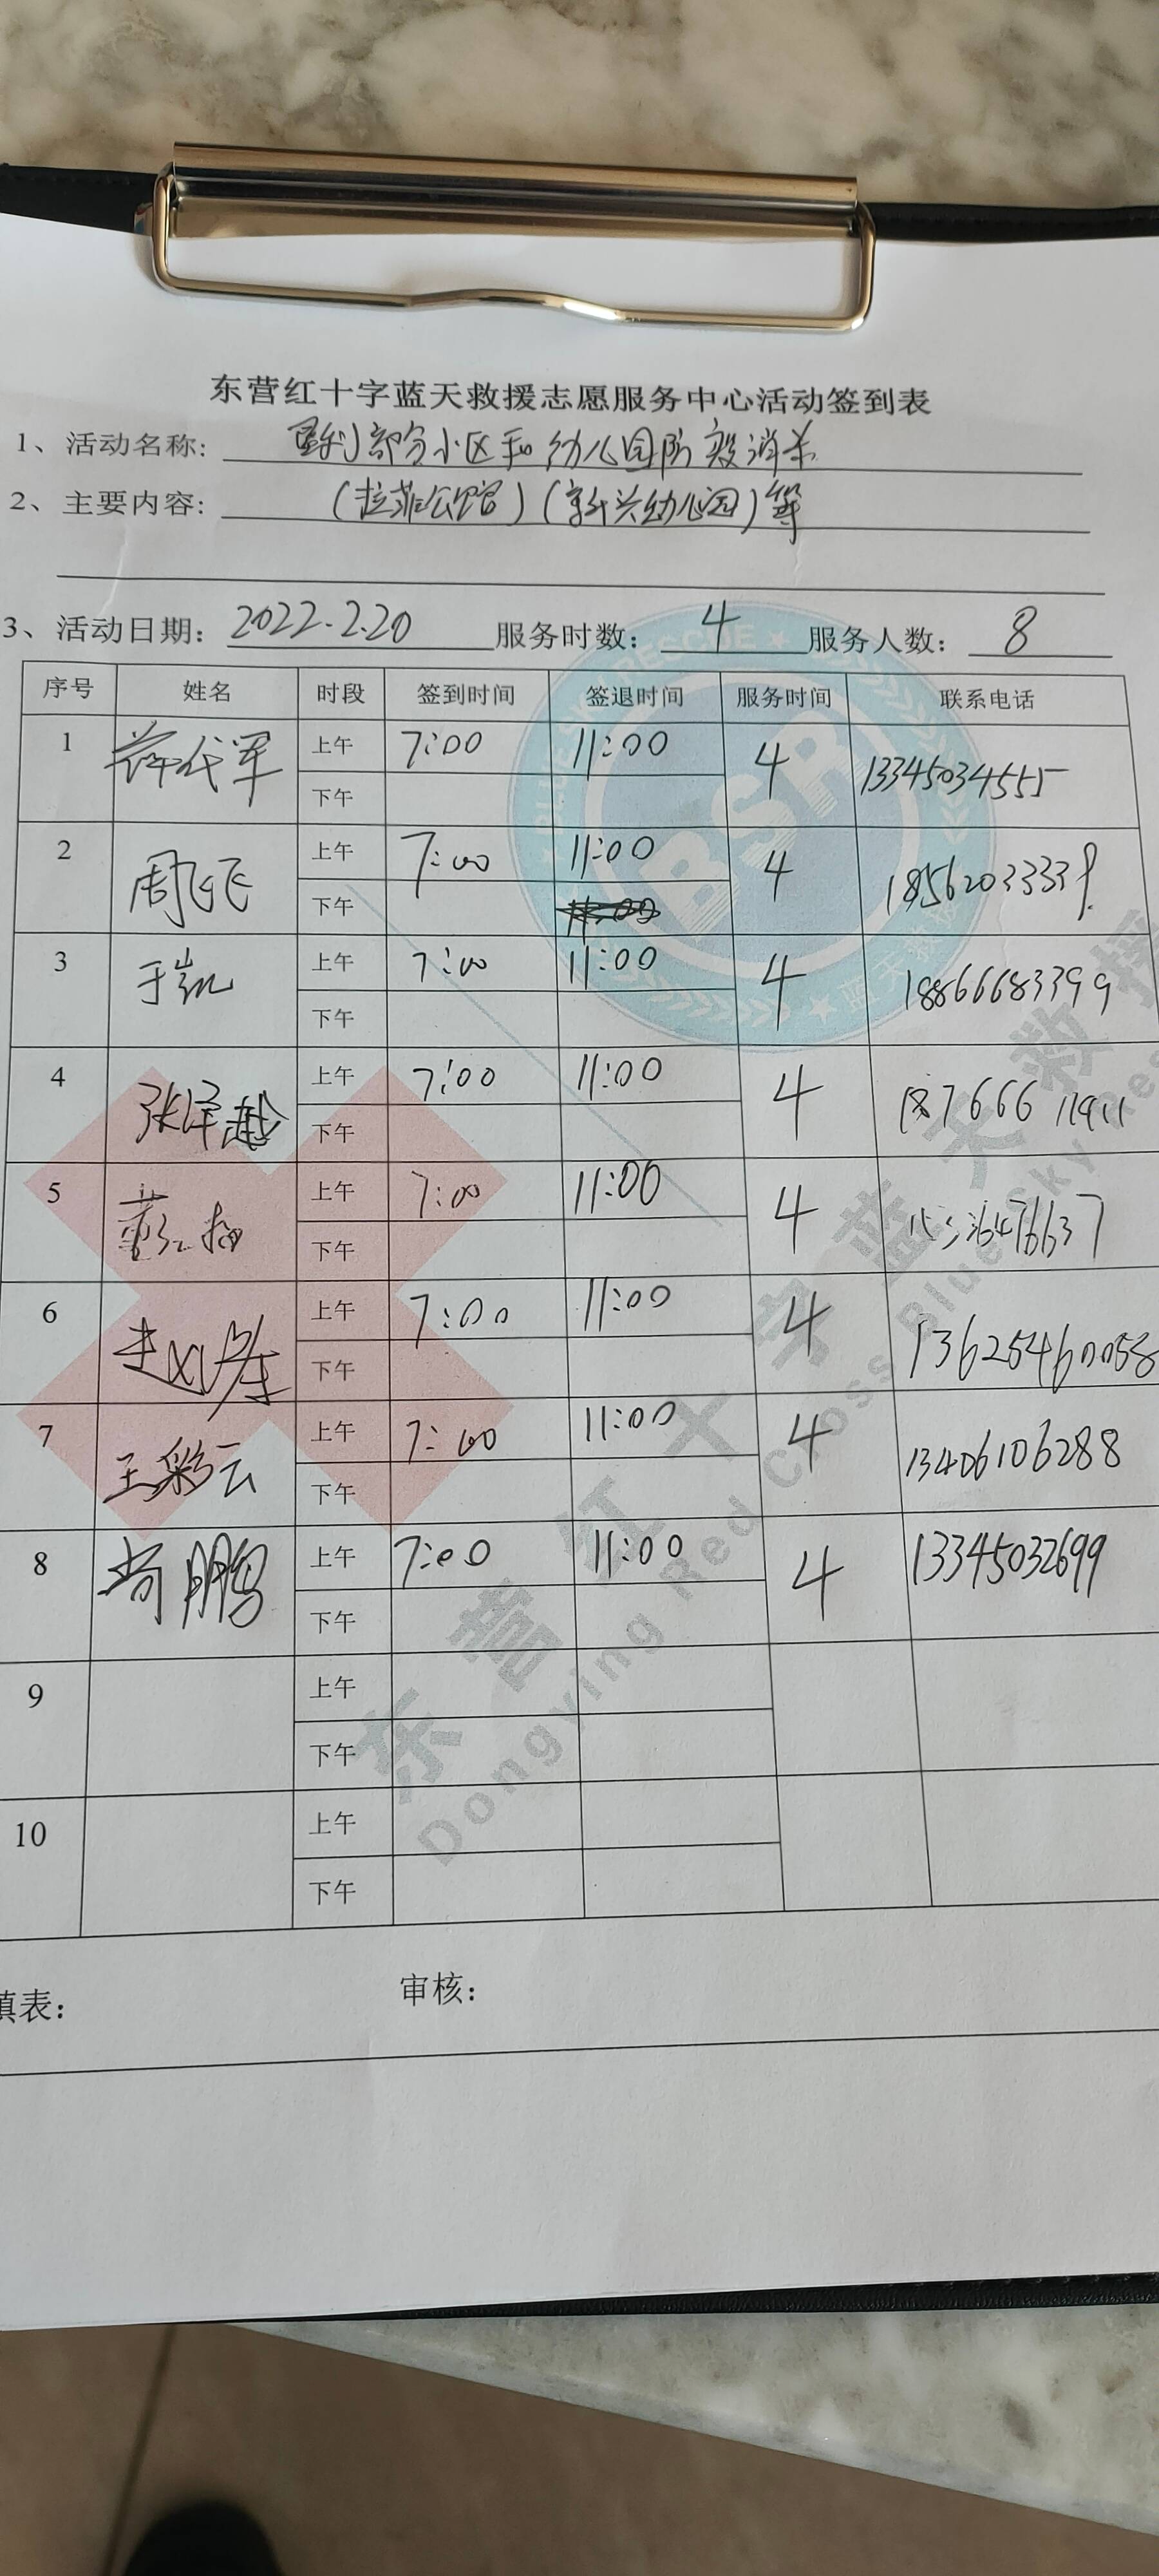 东营红十字蓝天救援志愿服务中心活动签到表
1、活动名称: 垦利部分小区和幼儿园防疫消杀
2、主要内容: (拉菲公馆)(新兴幼儿园)等
3、活动日期: 2022.2.20 服务时数: 4 服务人数: 8
序号 姓名 时段 签到时间 签退时间 服务时间 联系电话
1 薛代军 上午 7:00 11:00 4 13345034555
下午
2 周飞飞 上午 7:00 11:00 4 18562033339
下午
3 于凯 上午 7:00 11:00 4 18866683399
下午
4 张泽 上午 7:00 11:00 4 18766611911
下午
5 上午 7:00 11:00 4
下午
6 上午 7:00 11:00 4 13625460058
下午
7 王彩云 上午 7:00 11:00 4 13406106288
下午
8 尚鹏 上午 7:00 11:00 4 13345032699
下午
9 上午
下午
10 上午
下午
填表: 审核:
BSR
BLUE SKY RESCUE
蓝天救援
东营红十字蓝天救援
Dongying Red Cross Blue Sky Res